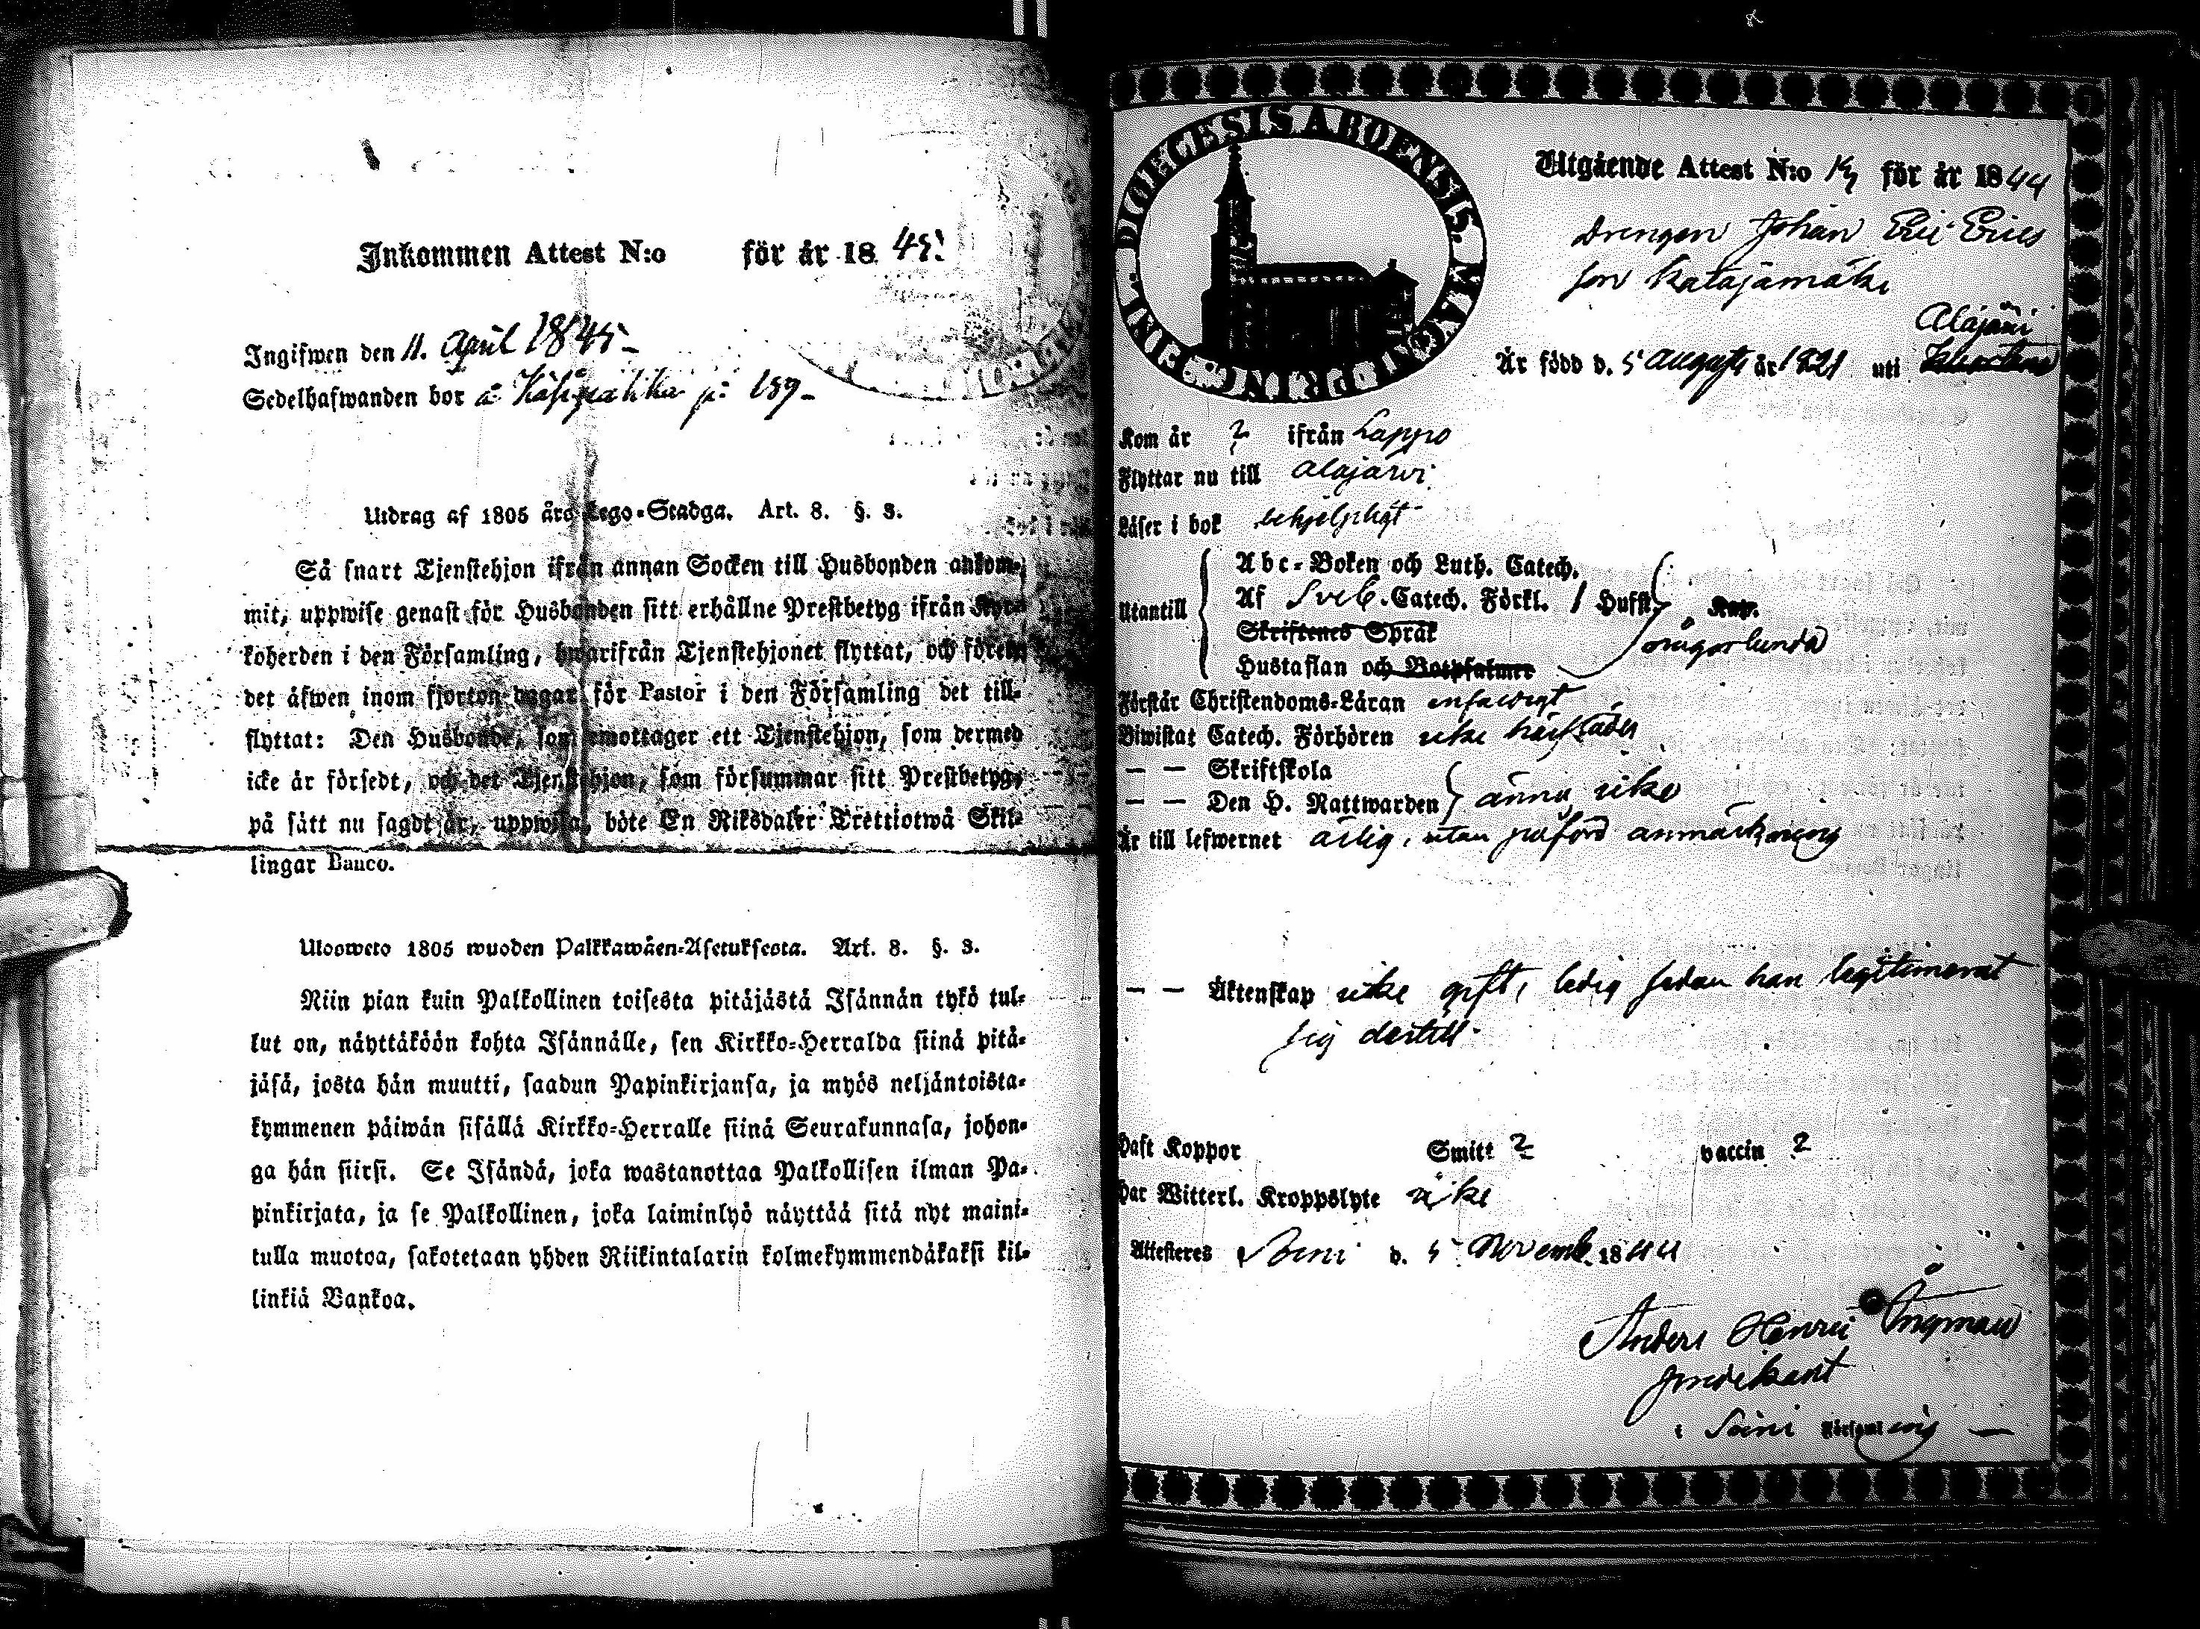 Inkommen Attest N:o för år 1845.
Ingifwen den 11. April 1845
Sedelhafwanden bor å p: 189
Utdrag af 1805 års Lego-Stadga. Art. 8. §. 3.
Så snart Tjenstehjon ifrån annan Socken till Husbonden ankom-
mit, uppwise genast för Husbonden sitt erhållne Prestbetyg ifrån Kyr-
koherden i den Församling, hwarifrån Tjenstehjonet flyttat, och förete
det äfwen inom fjorton dagar för Pastor i den Församling det till-
flyttat: Den Husbonde, som emottager ett Tjenstehjon, som dermed
icke är försedt, och det Tjenstehjon, som försummar sitt Prestbetyg,
på sätt nu sagdt är, uppwisa, böte En Riksdaler Trettiotwå Skil-
lingar Banco.
Uloswето 1805 wuoden Palkkawäen-Asetuksesta. Art. 8. §. 3.
Niin pian kuin Palkollinen toisesta pitäjästä Isännän tykö tul-
lut on, näyttäköön kohta Isännälle, sen Kirkko-Herralda siinä pitä-
jäsä, josta hän muutti, saadun Papinkirjansa, ja myös neljäntoista-
kymmenen päiwän sisällä Kirkko-Herralle siinä Seurakunnasa, johon-
ga hän siirsi. Se Isändä, joka wastanottaa Palkollisen ilman Pa-
pinkirjata, ja se Palkollinen, joka laiminlyö näyttää sitä nyt maini-
tulla muotoa, sakotetaan yhden Riikintalarin kolmekymmendäkaksi kil-
linkiä Bankoa.
DIOECESIS ABOENSIS. MAGNI PRINC. FINL.
Utgående Attest N:o för år 1844
Drengen Johan Eric Erics
son Katajamäki
Alajärvi
Är född d. 5 Augusti år 1821 uti
Kom år ? ifrån Lappo
Flyttar nu till Alajärvi
Läser i bok behjelpligt
Utantill
Abc-Boken och Luth. Catech.
Af Sveb. Catech. Förkl. / Hufst. Kap.
Skriftenes Språk
någorlunda
Hustaflan och Botpsalmer
Förstår Christendoms-Läran enfaldigt
Biwistat Catech. Förhören icke härstädes
— — Skriftskola
— — Den H. Nattwarden ännu icke
Är till lefwernet ärlig, utan påförd anmärkning
— — Äktenskap icke gift, ledig sedan han legitimerat
sig dertill.
Haft Koppor Smitt ? vaccin ?
Har Witterl. Kroppslyte icke
Attesteres Soini d. 5 Novemb. 1844
Anders Henric Ingman
Predikant
i Soini Församling —